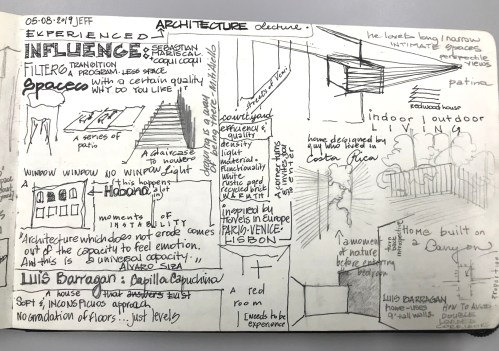 05-08-2019 JEFF
EXPERIENCED
ARCHITECTURE lecture.
INFLUENCE:
SEBASTIAN
MARISCAL
COQUI COQUI
FILTERS, TRANSITION
A PROGRAM-LESS SPACE
Spaces With a certain quality
WHY DO YOU LIKE IT
A series of
patio
A staircase
to nowhere
Light
WINDOW WINDOW NO WINDOW
this happens
Habana
moments of
INSTABILITY
"Architecture which does not erode comes
out of the capacity to feel emotion.
And this is a universal capacity."
ALVARO SIZA
LUIS Barragan: Capilla Capuchina
A house that answers
Soft & INCONSPICUOUS approach
No gradation of floors... just levels
being there
courtyard
efficiency &
quality
density
light
material.
Functionality
white
rustic aged
recycled brick
WARMTH
inspired by
travels in Europe
PARIS-VENICE-
LISBON
A corner turns
invites you
to enter
A red
room
needs to be
experience
he loves long/narrow
INTIMATE SPACES
perspective
views
patina
redwood house
indoor | outdoor
LIVING
home designed by
guy who lived in
Costa Rica
a moment
of nature
before entering
the bedroom
Home built on
a Canyon
LUIS BARRAGAN
home-uses
HOW TO AVOID
DOUBLE